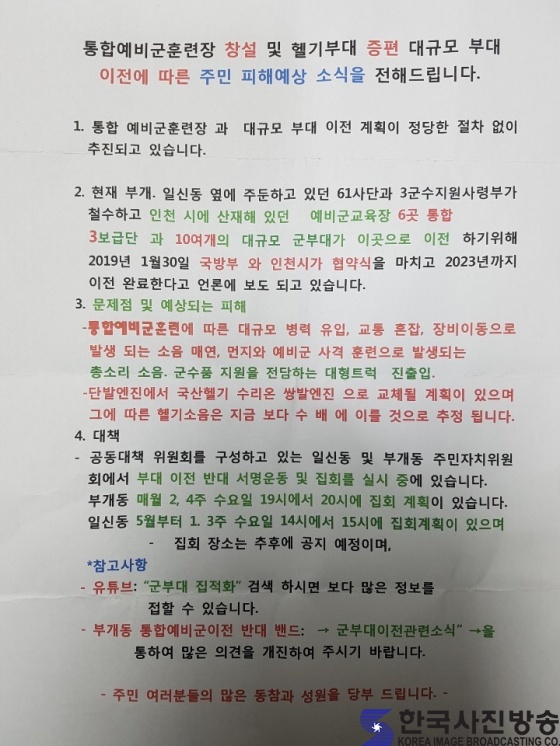 통합예비군훈련장 창설 및 헬기부대 증편 대규모 부대
이전에 따른 주민 피해예상 소식을 전해드립니다.
1. 통합 예비군훈련장 과 대규모 부대 이전 계획이 정당한 절차 없이
추진되고 있습니다.
2. 현재 부개. 일신동 옆에 주둔하고 있던 61사단과 3군수지원사령부가
철수하고 인천 시에 산재해 있던 예비군교육장 6곳 통합
3보급단 과 10여개의 대규모 군부대가 이곳으로 이전 하기위해
2019년 1월30일 국방부 와 인천시가 협약식을 마치고 2023년까지
이전 완료한다고 언론에 보도 되고 있습니다.
3. 문제점 및 예상되는 피해
-통합예비군훈련에 따른 대규모 병력 유입, 교통 혼잡, 장비이동으로
발생 되는 소음 매연, 먼지와 예비군 사격 훈련으로 발생되는
총소리 소음. 군수품 지원을 전담하는 대형트럭 진출입.
-단발엔진에서 국산헬기 수리온 쌍발엔진 으로 교체될 계획이 있으며
그에 따른 헬기소음은 지금 보다 수 배 에 이를 것으로 추정 됩니다.
4. 대책
- 공동대책 위원회를 구성하고 있는 일신동 및 부개동 주민자치위원
회에서 부대 이전 반대 서명운동 및 집회를 실시 중에 있습니다.
부개동 매월 2, 4주 수요일 19시에서 20시에 집회 계획이 있습니다.
일신동 5월부터 1. 3주 수요일 14시에서 15시에 집회계획이 있으며
- 집회 장소는 추후에 공지 예정이며,
*참고사항
- 유튜브: “군부대 집적화” 검색 하시면 보다 많은 정보를
접할 수 있습니다.
- 부개동 통합예비군이전 반대 밴드: → 군부대이전관련소식” →을
통하여 많은 의견을 개진하여 주시기 바랍니다.
- 주민 여러분들의 많은 동참과 성원을 당부 드립니다. -
한국사진방송
KOREA IMAGE BROADCASTING CO.